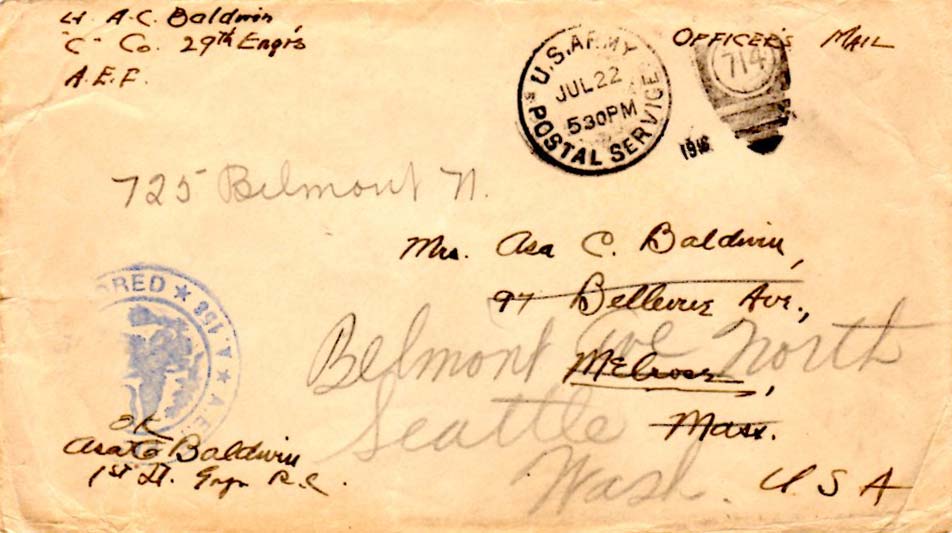 Lt A.C. Baldwin,
"C" Co. 29th Engrs
A.E.F.
U.S. ARMY
JUL 22
530PM
POSTAL SERVICE
OFFICER'S MAIL
714
725 Belmont N.
Mrs. Asa C. Baldwin,
97 Bellevue Ave.,
Melrose,
Mass.
U S A
Belmont Ave North
Seattle
Wash.
ORED ★ 158 ★ A.E.
OK
Asa C Baldwin
1st Lt. Engr R.C.